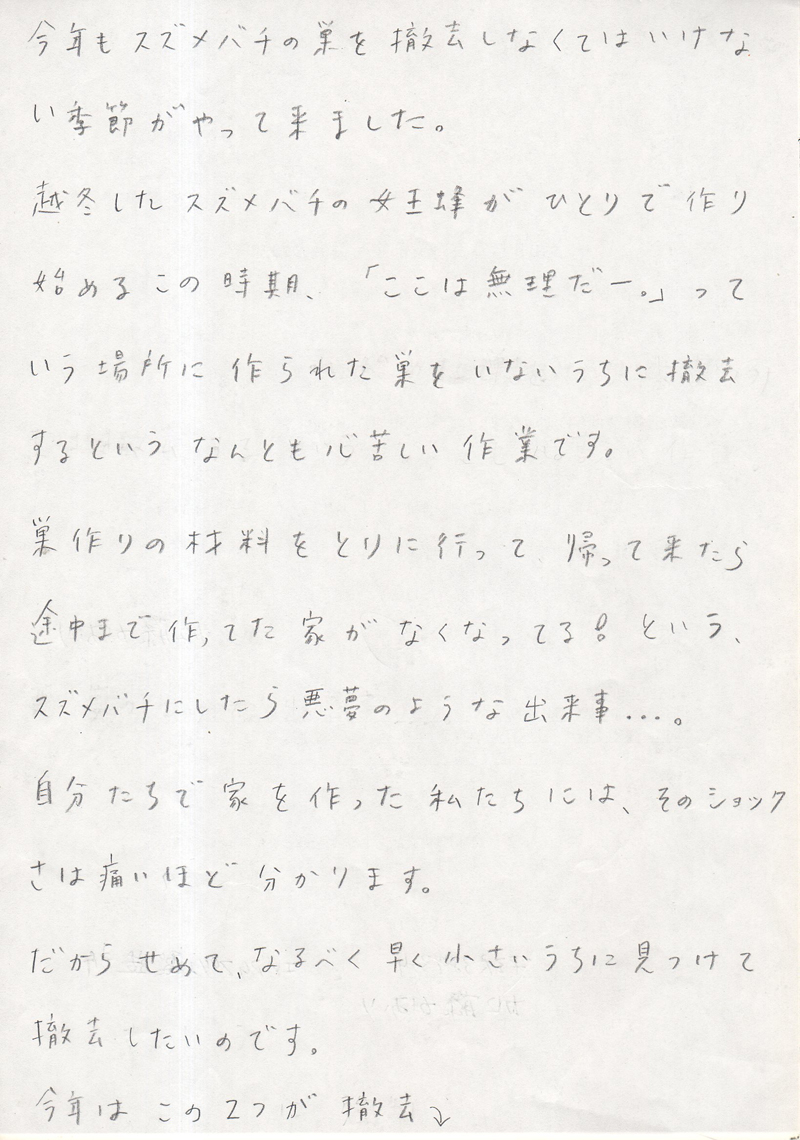 今年もスズメバチの巣を撤去しなくてはいけな
い季節がやって来ました。
越冬したスズメバチの女王蜂がひとりで作り
始めるこの時期、「ここは無理だー。」って
いう場所に作られた巣をいないうちに撤去
するというなんとも心苦しい作業です。
巣作りの材料をとりに行って帰って来たら
途中まで作ってた家がなくなってる!という、
スズメバチにしたら悪夢のような出来事…。
自分たちで家を作った私たちには、そのショック
さは痛いほど分かります。
だからせめて、なるべく早く小さいうちに見つけて
撤去したいのです。
今年はこの2つが撤去↓